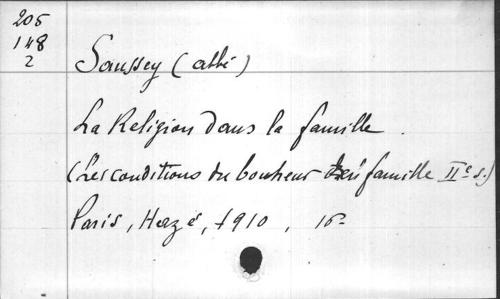 205
148
2
Saussey (abbé)
La Religion dans la famille.
(Les conditions du bonheur en famille IIe s.)
Paris, , 1910, 16-